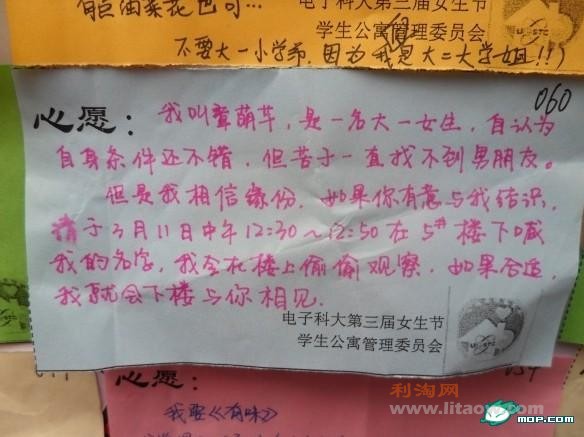 电子科大第三届女生节
学生公寓管理委员会
不要大一小学弟,因为我是大二大学姐!!)
060
心愿:我叫章萌芊,是一名大一女生,自认为
自身条件还不错,但苦于一直找不到男朋友。
但是我相信缘份,如果你有意与我结识,
请于3月11日中午12:30~12:50在5#楼下喊
我的名字,我会在楼上偷偷观察,如果合适,
我就会下楼与你相见.
电子科大第三届女生节
学生公寓管理委员会
心愿:
我要《有味》
利淘网
www.litao
MOP.com